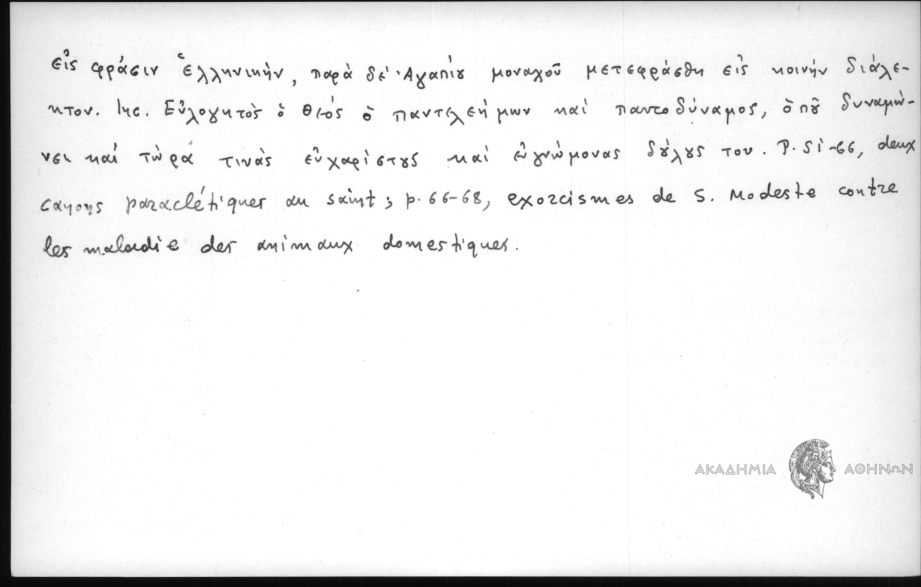 εἰς φράσιν ἑλληνικὴν, παρὰ δὲ Ἀγαπίου μοναχοῦ μετεφράσθη εἰς κοινὴν διάλε-
κτον. Inc. Εὐλογητὸς ὁ θεός ὁ παντελεήμων καὶ παντοδύναμος, ὁποῦ δυναμώ-
νει καὶ τώρα τινὰς εὐχαρίστους καὶ εὐγνώμονας δούλους του. P. 51-66, deux
canons paraclétiques au saint; p. 66-68, exorcismes de S. Modeste contre
les maladie des animaux domestiques.
ΑΚΑΔΗΜΙΑ ΑΘΗΝΩΝ